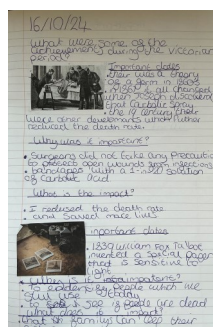 16/10/24
What were some of the
achievements during the victorian
period?
Important dates
their was a theory
of a germ in 1860s
it all changed
when Joseph discovered
that Carbolic Spray
the 19 century their
were other developments which futher
reduced the death rate.
Why was it important?
Surgeons did not take any Precautio
to protect open wounds from infections
bandages with a solution
of carbolic acid
What is the impact?
I reduced the death rate
and saved more lives
important dates
1839 William Fox Talbot
invented a special paper
that is sensitive to
light
Why is it important?
People which we
still use today
to see if people are dead
what does it impact?
that families can see their